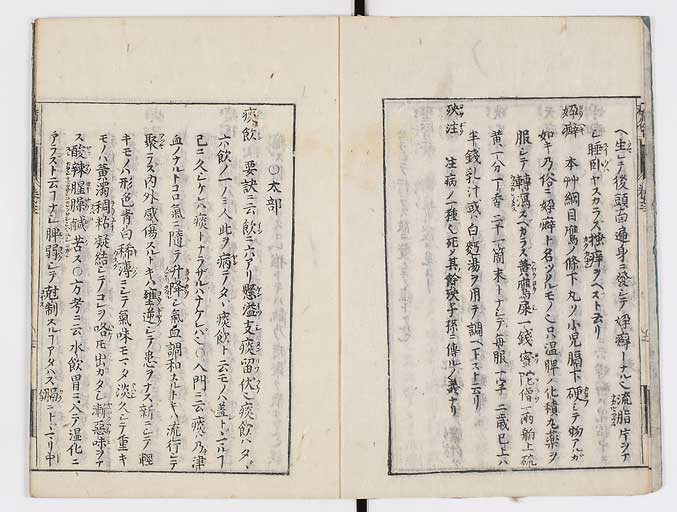 ヘ生シテ後頭面遍身ニ發シテ妳癬トナル也流脂片シテ
シ睡臥ヤスカラス搔癢ヲヘストモ云リ
妳癖 本艸綱目鷹ノ條下凡ソ小児膈下硬シテ物アルガ
如キ乃俗ニ妳癖ト名ツクルモノ也只温脾ノ化積丸藥ヲ
服シテ轉瀉スヘカラス善鷹屎一錢蜜陀僧一兩舶上硫
黄一分丁香二十一箇末トナシテ毎服一字三歳已上ハ
半錢乳汁或ハ白麪湯ヲ用テ調ヘ下ストモ云リ
殃注 注病ノ一種也死シテ其餘殃子孫ニ傳ルノ義ナリ
○太部
痰飲 要訣ニ云飲ニ六アリ懸溢支痰留伏也痰飲ハタヾ
六飲ノ一ノミ人此ヲ病テタヾ痰飲ト云モノハ蓋トヽマルフ
已ニ久シケレハ痰トナラザルハナケレハ也○入門ニ云痰ハ乃津
血ノナルトコロ氣ニ隨テ升降シ氣血調和スルトキハ流行シテ
聚ラス内外感傷スルトキハ壅逆シテ患ヲナス新ニシテ輕
キモノハ形色青白稀薄ニシテ氣味モマタ淡久シテ重キ
モノハ黄濁稠粘凝結シテコレヲ咯モ出カタシ漸惡味ヲナ
ス酸辣腥臊鹹苦ス○方考ニ云水飲胃ニ入テ湿化ニ
アラスト云フナシ脾弱シテ尅制スルフアタハス膈ニトヽマリ中